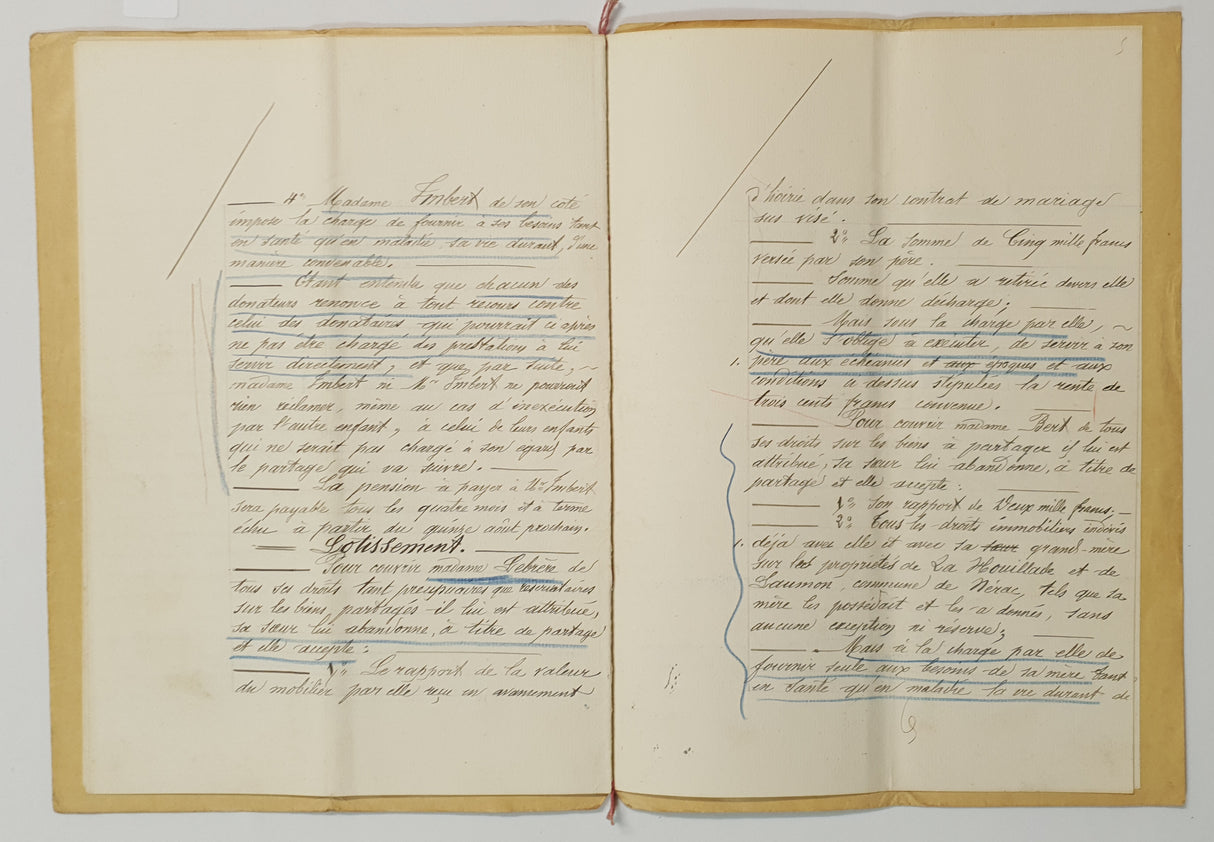 4° Madame Imbert de son côté
impose la charge de fournir à ses besoins tant
en santé qu'en maladie sa vie durant, d'une
manière convenable.
Étant entendu que chacun des
donateurs renonce à tout recours contre
celui des donataires qui pourrait ci après
ne pas être chargé des prestations à lui
servir directement, et que par suite,
madame Imbert ni Mr Imbert ne pourront
rien réclamer, même au cas d'inexécution
par l'autre enfant, à celui de leurs enfants
qui ne serait pas chargé à son égard par
le partage qui va suivre.
La pension à payer à Mr Imbert
sera payable tous les quatre mois et à terme
échu à partir du quinze août prochain.
Lotissement.
Pour couvrir madame Lebrère de
tous ses droits tant préciputaires que réservataires
sur les biens, partagés il lui est attribué,
sa sœur lui abandonne, à titre de partage
et elle accepte:
1° Le rapport de la valeur
du mobilier par elle reçu en avancement
5
d'hoirie dans son contrat de mariage
sus visé.
2° La somme de Cinq mille francs
versée par son père.
Somme qu'elle a retirée devers elle
et dont elle donne décharge;
Mais sous la charge par elle,
qu'elle s'oblige à exécuter, de servir à son
père aux échéances et aux époques et aux
conditions ci dessus stipulées la rente de
trois cents francs convenue.
Pour couvrir madame Bert de tous
ses droits sur les biens à partager il lui est
attribué, sa sœur lui abandonne, à titre de
partage et elle accepte:
1° Son rapport de Deux mille francs;
2° Tous les droits immobiliers indivis
déjà avec elle et avec sa sœur grand-mère
sur les propriétés de La Houillade et de
Laumon, commune de Nérac, tels que sa
mère les possédait et les a donnés, sans
aucune exception ni réserve;
Mais à la charge par elle de
fournir seule aux besoins de sa mère tant
en santé qu'en maladie sa vie durant de